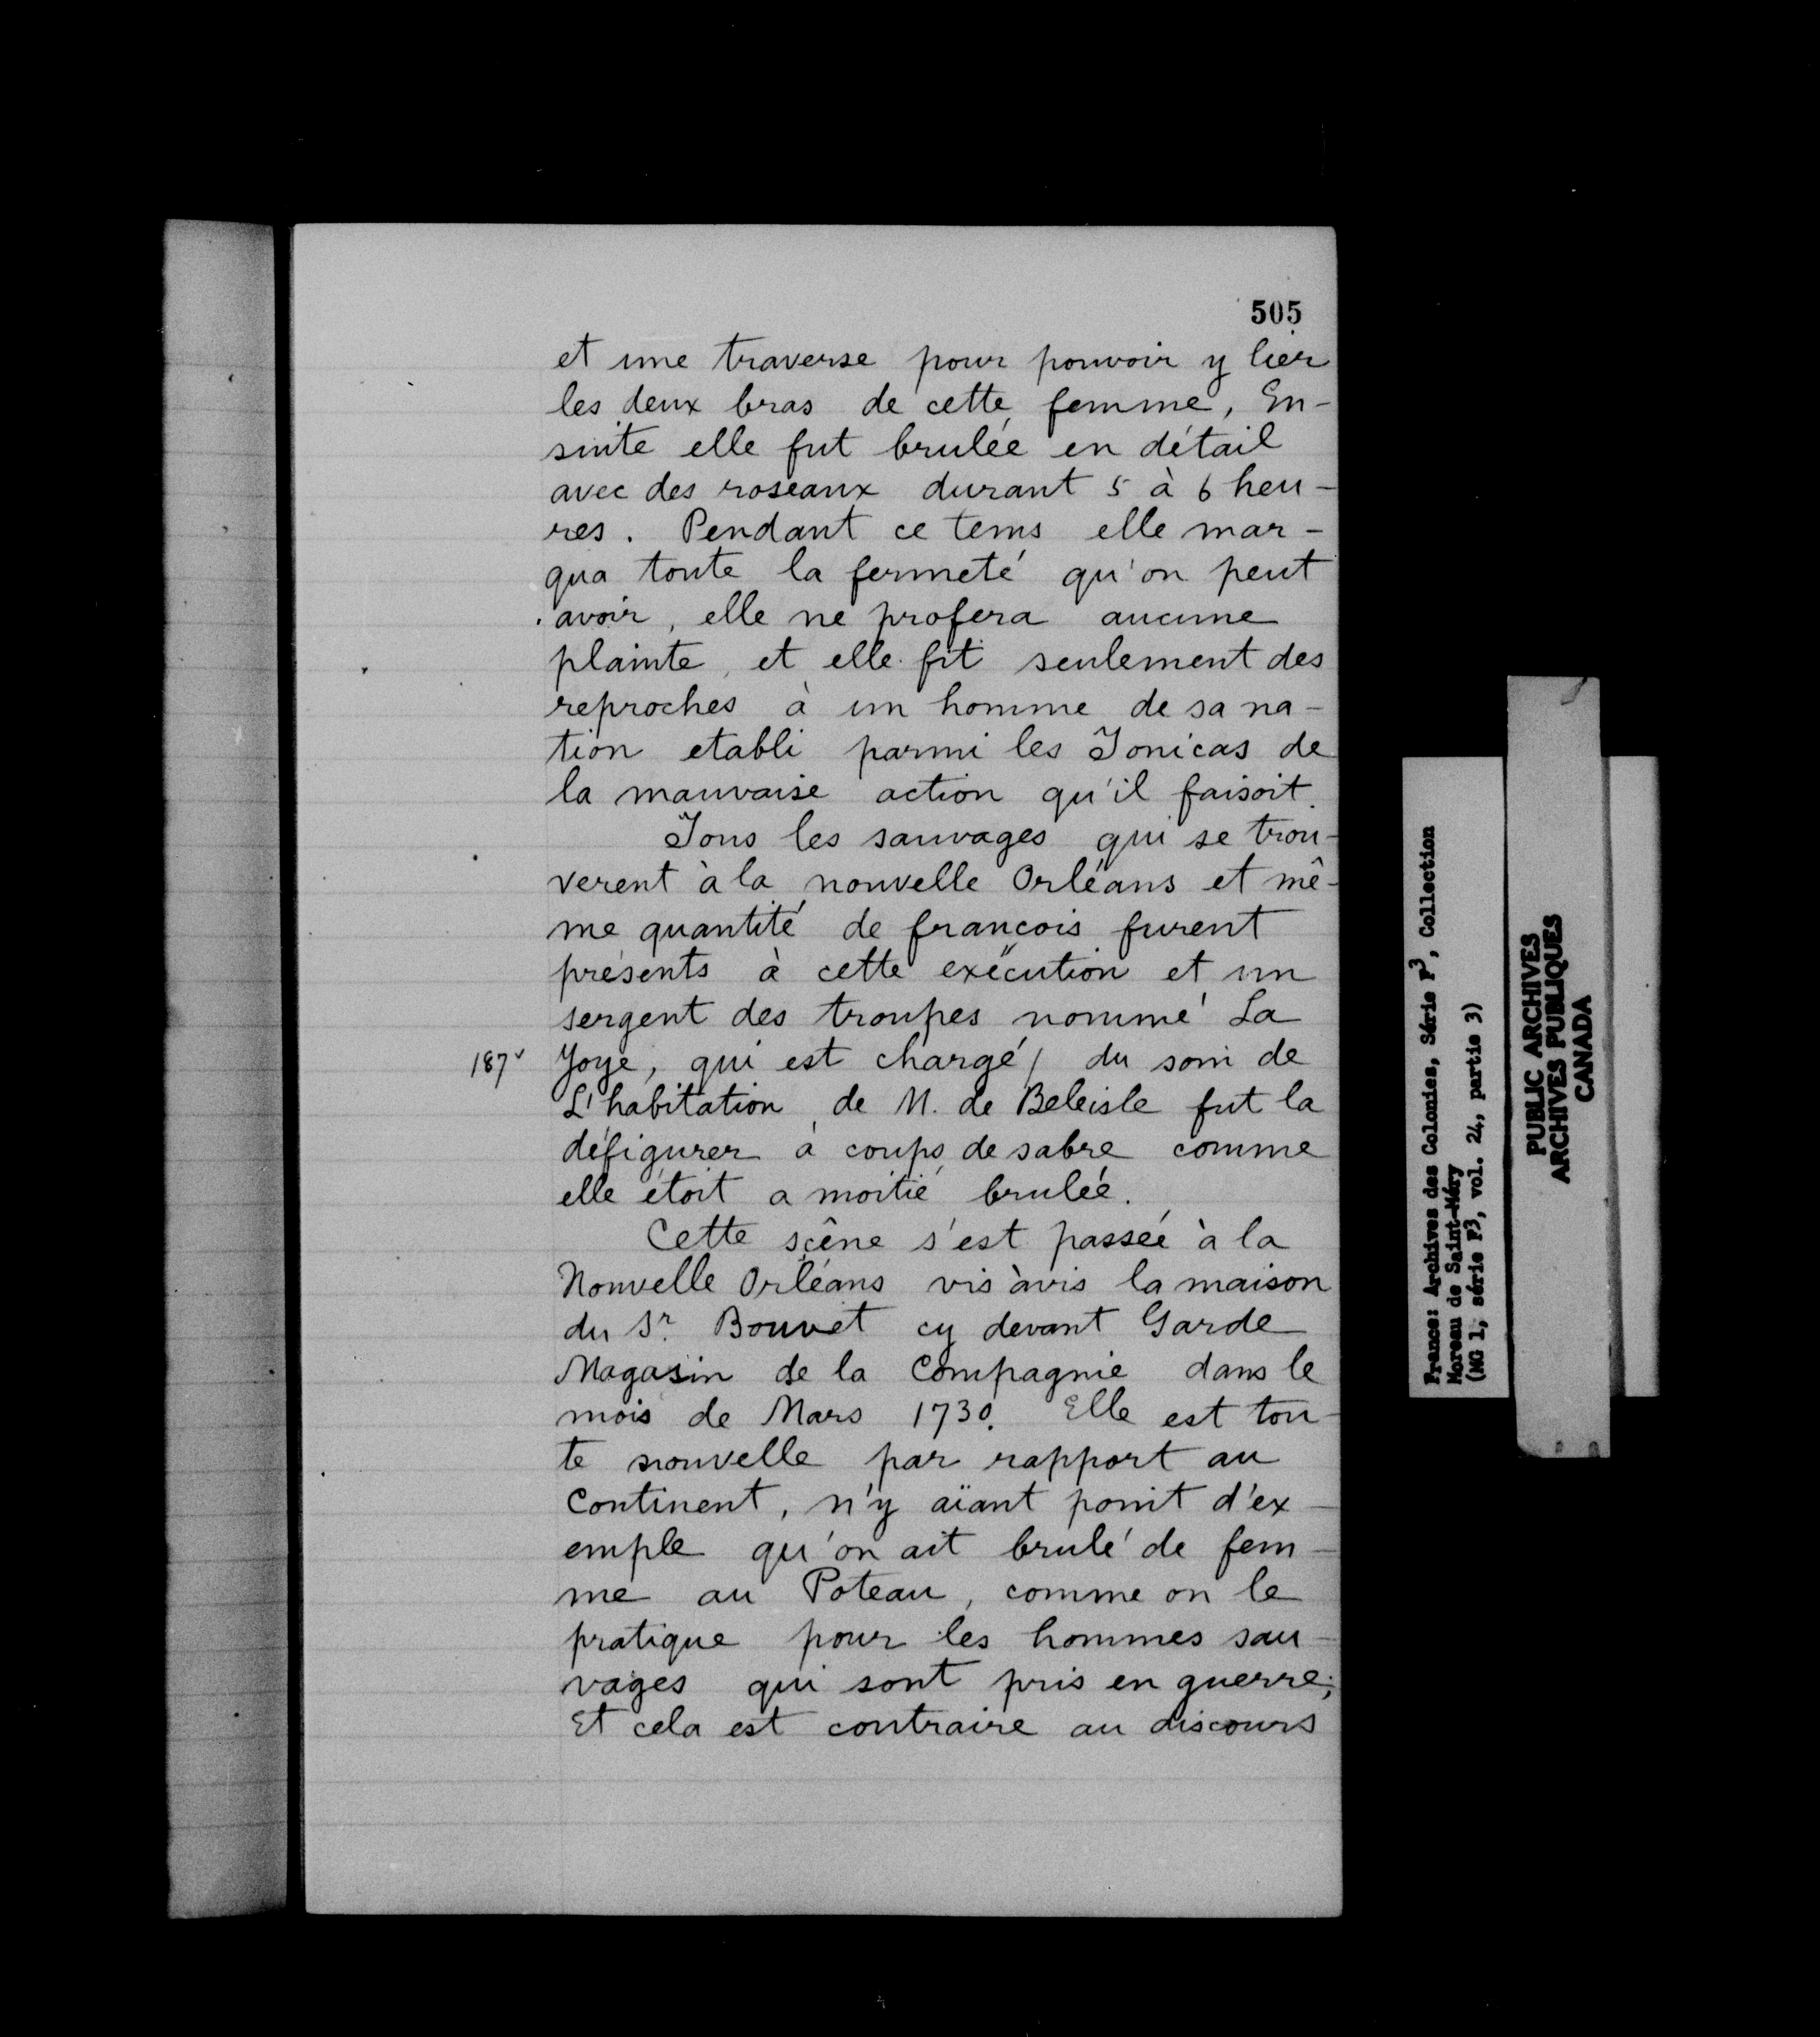 505
et une traverse pour pouvoir y lier
les deux bras de cette femme, En-
suite elle fut brulée en détail
avec des roseaux durant 5 à 6 heu-
res. Pendant ce tems elle mar-
qua toute la fermeté qu'on peut
avoir, elle ne profera aucune
plainte, et elle fit seulement des
reproches à un homme de sa na-
tion etabli parmi les Tonicas de
la mauvaise action qu'il faisoit.
Tous les sauvages qui se trou-
verent à la nouvelle Orléans et mê-
me quantité de françois furent
présents à cette exécution et un
sergent des troupes nommé La
187v Joye, qui est chargé / du soin de
L'habitation de M. de Beleisle fut la
défigurer à coups de sabre comme
elle étoit a moitié brulée.
Cette scêne s'est passée à la
Nouvelle Orléans vis à vis la maison
du Sr. Bouvet cy devant Garde
Magasin de la Compagnie dans le
mois de Mars 1730. Elle est tou-
te nouvelle par rapport au
Continent, n'y aïant point d'ex-
emple qu'on ait brulé de fem-
me au Poteau, comme on le
pratique pour les hommes sau-
vages qui sont pris en guerre;
Et cela est contraire au discours
France: Archives des Colonies, Série F3, Collection
Moreau de Saint-Méry
(MG 1, série F3, vol. 24, partie 3)
PUBLIC ARCHIVES
ARCHIVES PUBLIQUES
CANADA